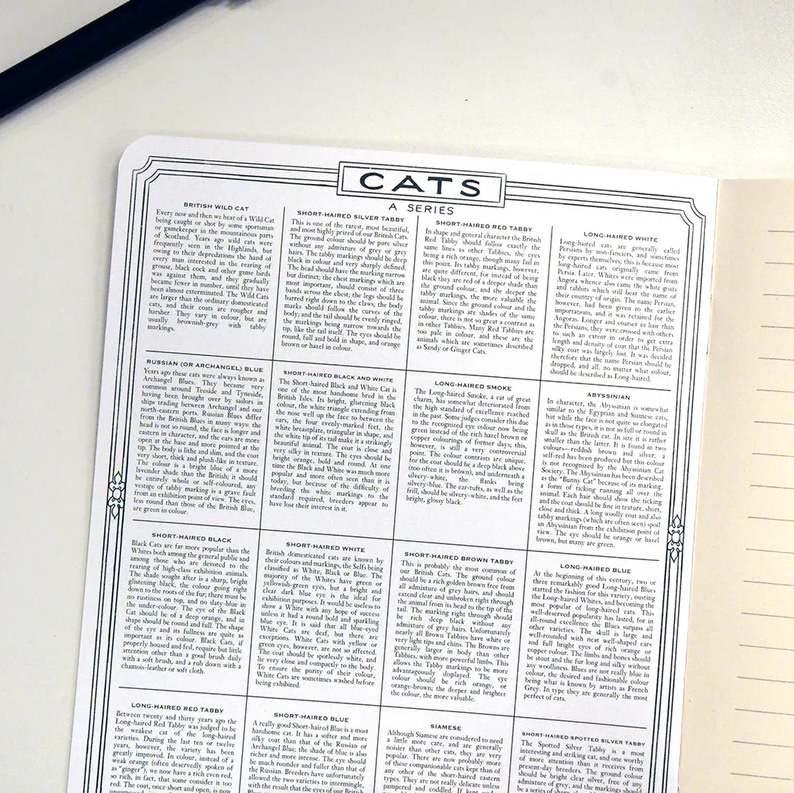 CATS
A SERIES
BRITISH WILD CAT
Every now and then we hear of a Wild Cat
being caught or shot by some sportsman
or gamekeeper in the mountainous parts
of Scotland. Years ago wild cats were
frequently seen in the Highlands, but
owing to their depredations the hand of
every man interested in the rearing of
grouse, black cock and other game birds
was against them, and they gradually
became fewer in number, until they have
been almost exterminated. The Wild Cats
are larger than the ordinary domesticated
cats, and their coats are rougher and
harsher. They vary in colour, but are
usually brownish-grey with tabby
markings.
SHORT-HAIRED SILVER TABBY
This is one of the rarest, most beautiful,
and most highly prized of our British Cats.
The ground colour should be pure silver
without any admixture of grey or other
hairs. The tabby markings should be deep
black in colour and very sharply defined.
The head should have the marking narrow
but distinct; the chest markings which are
most important, should consist of three
bands across the chest; the legs should be
barred right down to the claws; the body
marks should follow the curves of the
body; and the tail should be evenly ringed,
the markings being narrow towards the
tip, like the tail itself. The eyes should be
round, full and bold in shape, and orange
brown or hazel in colour.
SHORT-HAIRED RED TABBY
In shape and general character the British
Red Tabby should follow exactly the
same lines as other Tabbies, the eyes
being a rich orange, though many fail in
this point. Its tabby markings, however,
are quite different, for instead of being
black they are red of a deeper shade than
the ground colour, and the deeper the
tabby markings, the more valuable the
animal. Since the ground colour and the
tabby markings are shades of the same
colour, there is not so great a contrast as
in other Tabbies. Many Red Tabbies are
too pale in colour, and these are the
animals which are sometimes described
as Sandy or Ginger Cats.
LONG-HAIRED WHITE
Long-haired cats are generally called
Persians by non-fanciers, and sometimes
by experts themselves; this is because most
long-haired cats originally came from
Persia. Later, Whites were imported from
Angora whence also came the white goats
and rabbits which still bear the name of
their country of origin. The name Persian,
however, had been given to the earlier
importations, and it was retained for the
Angoras. Longer and coarser in hair than
the Persians, they were crossed with others
to such an extent in order to get extra
length and density of coat that the Persian
silky coat was largely lost. It was decided
therefore that the name Persian should be
dropped, and all, no matter what colour,
should be described as Long-haired.
RUSSIAN (OR ARCHANGEL) BLUE
Years ago these cats were always known as
Archangel Blues. They became very
common around Teeside and Tyneside,
having been brought over by sailors in
ships trading between Archangel and our
north-eastern ports. Russian Blues differ
from the British Blues in many ways: the
head is not so round, the face is longer and
eastern in character, and the ears are more
open at the base and more pointed at the
tip. The body is lithe and slim, and the coat
very short, thick and plush-like in texture.
The colour is a bright blue of a more
lavender shade than the British; it should
be entirely whole or self-coloured, any
vestige of tabby marking is a grave fault
from an exhibition point of view. The eyes,
less round than those of the British Blue,
are green in colour.
SHORT-HAIRED BLACK AND WHITE
The Short-haired Black and White Cat is
one of the most handsome bred in the
British Isles. Its bright, glistening black
colour, the white triangle extending from
the nose well up the face to between the
ears, the four evenly-marked feet, the
white breastplate, triangular in shape, and
the white tip of its tail make it a strikingly
beautiful animal. The coat is close and
very silky in texture. The eyes should be
bright orange, bold and round. At one
time the Black and White was much more
popular and more often seen than it is
today, but because of the difficulty of
breeding the white markings to the
standard required, breeders appear to
have lost their interest in it.
LONG-HAIRED SMOKE
The Long-haired Smoke, a cat of great
charm, has somewhat deteriorated from
the high standard of excellence reached
in the past. Some judges consider this due
to the recognised eye colour now being
green instead of the rich hazel brown or
copper colourings of former days; this,
however, is still a very controversial
point. The colour contrasts are unique,
for the coat should be a deep black above
(too often it is brown), and underneath a
silvery-white, the flanks being
silvery-blue. The ear-tufts, as well as the
frill, should be silvery-white, and the feet
bright, glossy black.
ABYSSINIAN
In character, the Abyssinian is somewhat
similar to the Egyptian and Siamese cats,
but while the face is not quite so elongated
as in those types, it is not so full or round in
skull as the British cat. In size it is rather
smaller than the latter. It is found in two
colours—reddish brown and silver; a
self-red has been produced but this colour
is not recognized by the Abyssinian Cat
Society. The Abyssinian has been described
as the "Bunny Cat" because of its marking,
a form of ticking running all over the
animal. Each hair should show the ticking,
and the coat should be fine in texture, short,
close and thick. A long woolly coat and also
tabby markings (which are often seen) spoil
an Abyssinian from the exhibition point of
view. The eye should be orange or hazel
brown, but many are green.
SHORT-HAIRED BLACK
Black Cats are far more popular than the
Whites both among the general public and
among those who are devoted to the
rearing of high-class exhibition animals.
The shade sought after is a sharp, bright
glistening black, the colour going right
down to the roots of the fur; there must be
no rustiness on top, and no slaty-blue in
the under-colour. The eye of the Black
Cat should be of a deep orange, and in
shape should be round and full. The shape
of the eye and its fullness are quite as
important as its colour. Black Cats, if
properly housed and fed, require but little
attention other than a good brush daily
with a soft brush, and a rub down with a
chamois-leather or soft cloth.
SHORT-HAIRED WHITE
British domesticated cats are known by
their colours and markings, the Selfs being
classified as White, Black or Blue. The
majority of the Whites have green or
yellowish-green eyes, but a bright and
clear dark blue eye is the ideal for
exhibition purposes. It would be useless to
show a White with any hope of success
unless it had a round bold and sparkling
blue eye. It is said that all blue-eyed
White Cats are deaf, but there are
exceptions. White Cats with yellow or
green eyes, however, are not so affected.
The coat should be spotlessly white, and
lie very close and compactly to the body.
To ensure the purity of their colour,
White Cats are sometimes washed before
being exhibited.
SHORT-HAIRED BROWN TABBY
This is probably the most common of
our British Cats. The ground colour
should be a rich golden brown free from
any admixture of grey hairs, and should
extend clear and unbroken right through
the animal from its head to the tip of the
tail. The marking right through should
be rich deep black without any
admixture of grey hairs. Unfortunately
nearly all Brown Tabbies have white or
very light tips and chins. The Browns are
generally larger in body than other
Tabbies, with more powerful limbs. This
allows the Tabby markings to be more
advantageously displayed. The eye
colour should be rich orange, or
orange-brown; the deeper and brighter
the colour, the more valuable.
LONG-HAIRED BLUE
At the beginning of this century, two or
three remarkably good Long-haired Blues
started the fashion for this variety, ousting
the Long-haired Whites, and becoming the
most popular of long-haired cats. This
well-deserved popularity has lasted, for in
all-round excellence the Blues surpass all
other varieties. The skull is large and
well-rounded with neat well-shaped ears
and full bright eyes of rich orange or
copper. The limbs and bones should
be stout and the fur long and silky without
any woolliness. Blues are not really blue in
colour, the desired and fashionable colour
being what is known by artists as French
Grey. In type they are generally the most
perfect of cats.
LONG-HAIRED RED TABBY
Between twenty and thirty years ago the
Long-haired Red Tabby was judged to be
the weakest cat of the long-haired
varieties. During the last ten or twelve
years, however, the variety has been
greatly improved. In colour, instead of a
weak orange (often deservedly spoken of
as "ginger"), we now have a rich even red,
so rich, in fact, that some consider it too
red. The coat, once short and open, is now
SHORT-HAIRED BLUE
A really good Short-haired Blue is a most
handsome cat. It has a softer and more
silky coat than that of the Russian or
Archangel Blue; the shade of blue is also
richer and more intense. The eye should
be much rounder and fuller than that of
the Russian. Breeders have unfortunately
allowed the two varieties to intermingle,
with the result that the eyes of our British
SIAMESE
Although Siamese are considered to need
a little more care, and are generally
noisier than other cats, they are very
popular. There are now probably more
of these companionable cats kept than of
any other of the short-haired eastern
types. They are not really delicate unless
pampered and coddled. If kept
SHORT-HAIRED SPOTTED SILVER TABBY
The Spotted Silver Tabby is a most
interesting and striking cat, and one worthy
of more attention than it receives from
present-day breeders. The ground colour
should be bright clear silver, free of any
admixture of grey, and the markings should